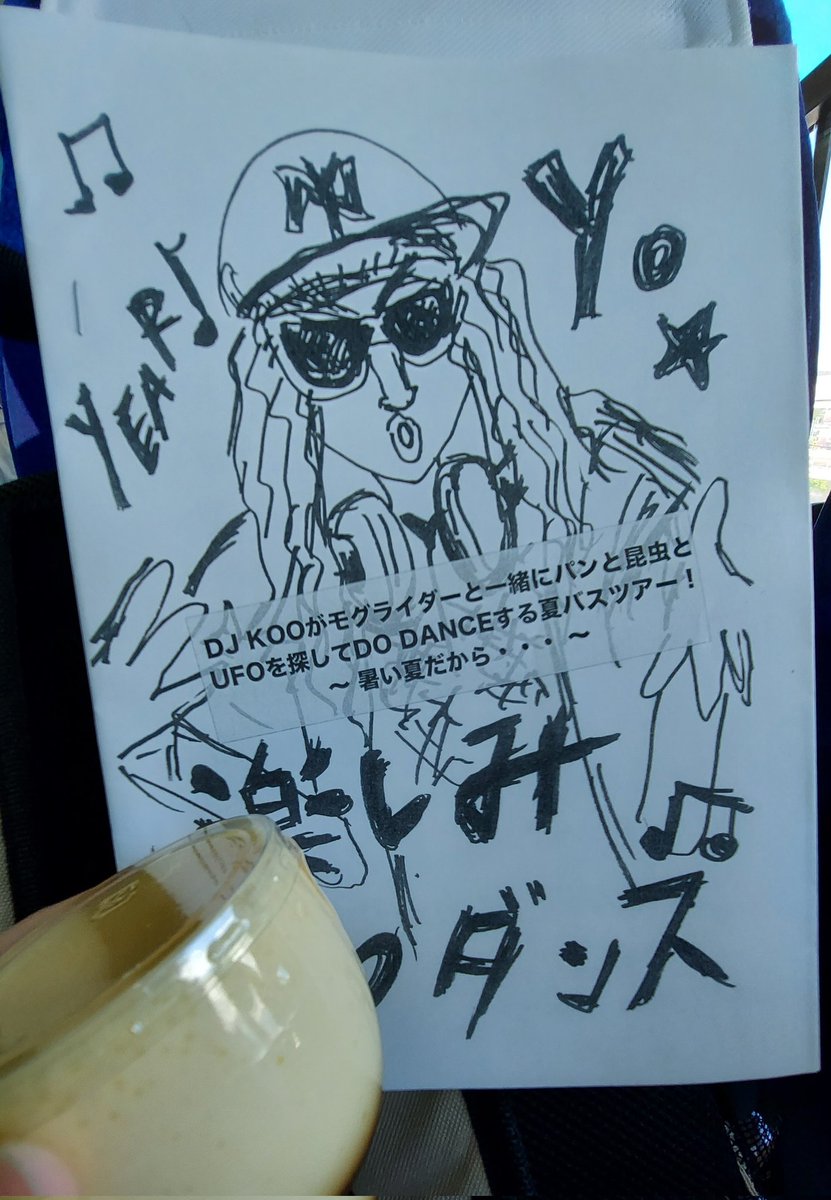 YO
YEAR
DJ KOOがモグライダーと一緒にパンと昆虫と
UFOを探してDO DANCEする夏バスツアー！
～ 暑い夏だから・・・ ～
楽しみ
ダンス